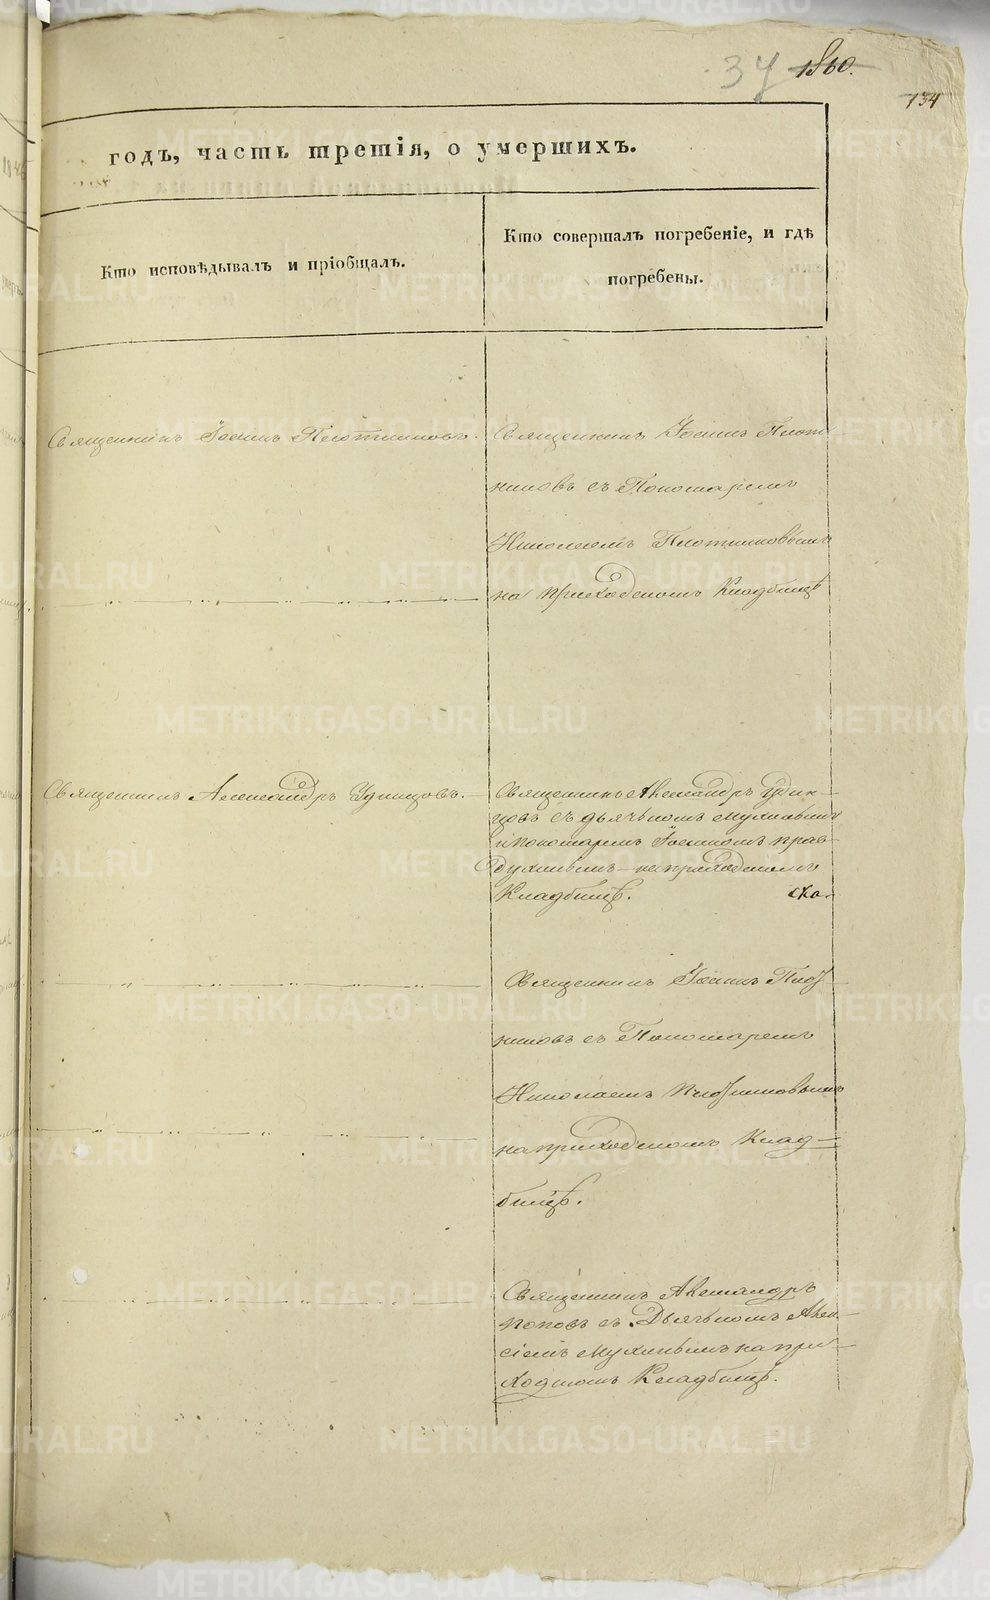 37 1860.
134
годъ, часть третія, о умершихъ.
Кто исповѣдывалъ и пріобщалъ.
Кто совершалъ погребеніе, и гдѣ
погребены.
Священникъ Іоаннъ Плотниковъ.
Священникъ Іоаннъ Плот
никовъ съ Пономаремъ
Николаемъ Плотниковымъ
на приходскомъ Кладбищѣ
Священникъ Александръ Удинцовъ.
Священникъ Александръ Удин-
цовъ съ дьячкомъ
и пономаремъ Іоанномъ
на приходскомъ
Кладбищѣ.
Священникъ Іоаннъ Плот
никовъ съ Пономаремъ
Николаемъ Плотниковымъ
на приходскомъ Клад-
бищѣ.
Священникъ Александръ
Поповъ съ Дьячкомъ Алек-
сіемъ на при-
ходскомъ Кладбищѣ.
METRIKI.GASO-URAL.RU